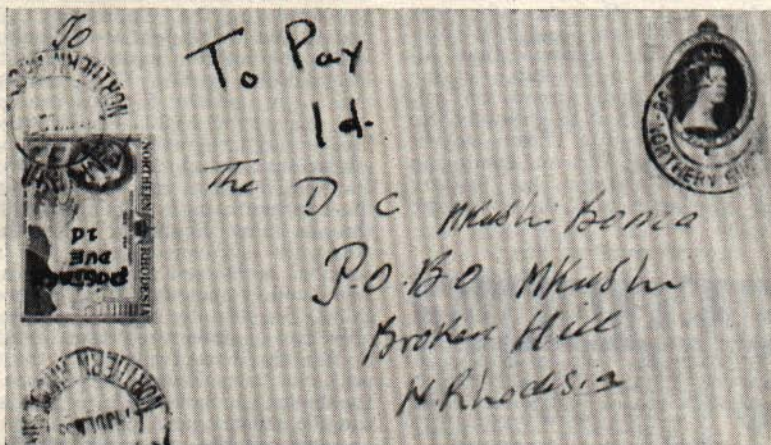 To
To Pay
1d.
The D C Mkushi Boma
P.O. BO Mkushi
Broken Hill
N. Rhodesia
NORTHERN RHODESIA
POSTAGE
DUE
1d
NORTHERN
NORTHERN
NORTHERN